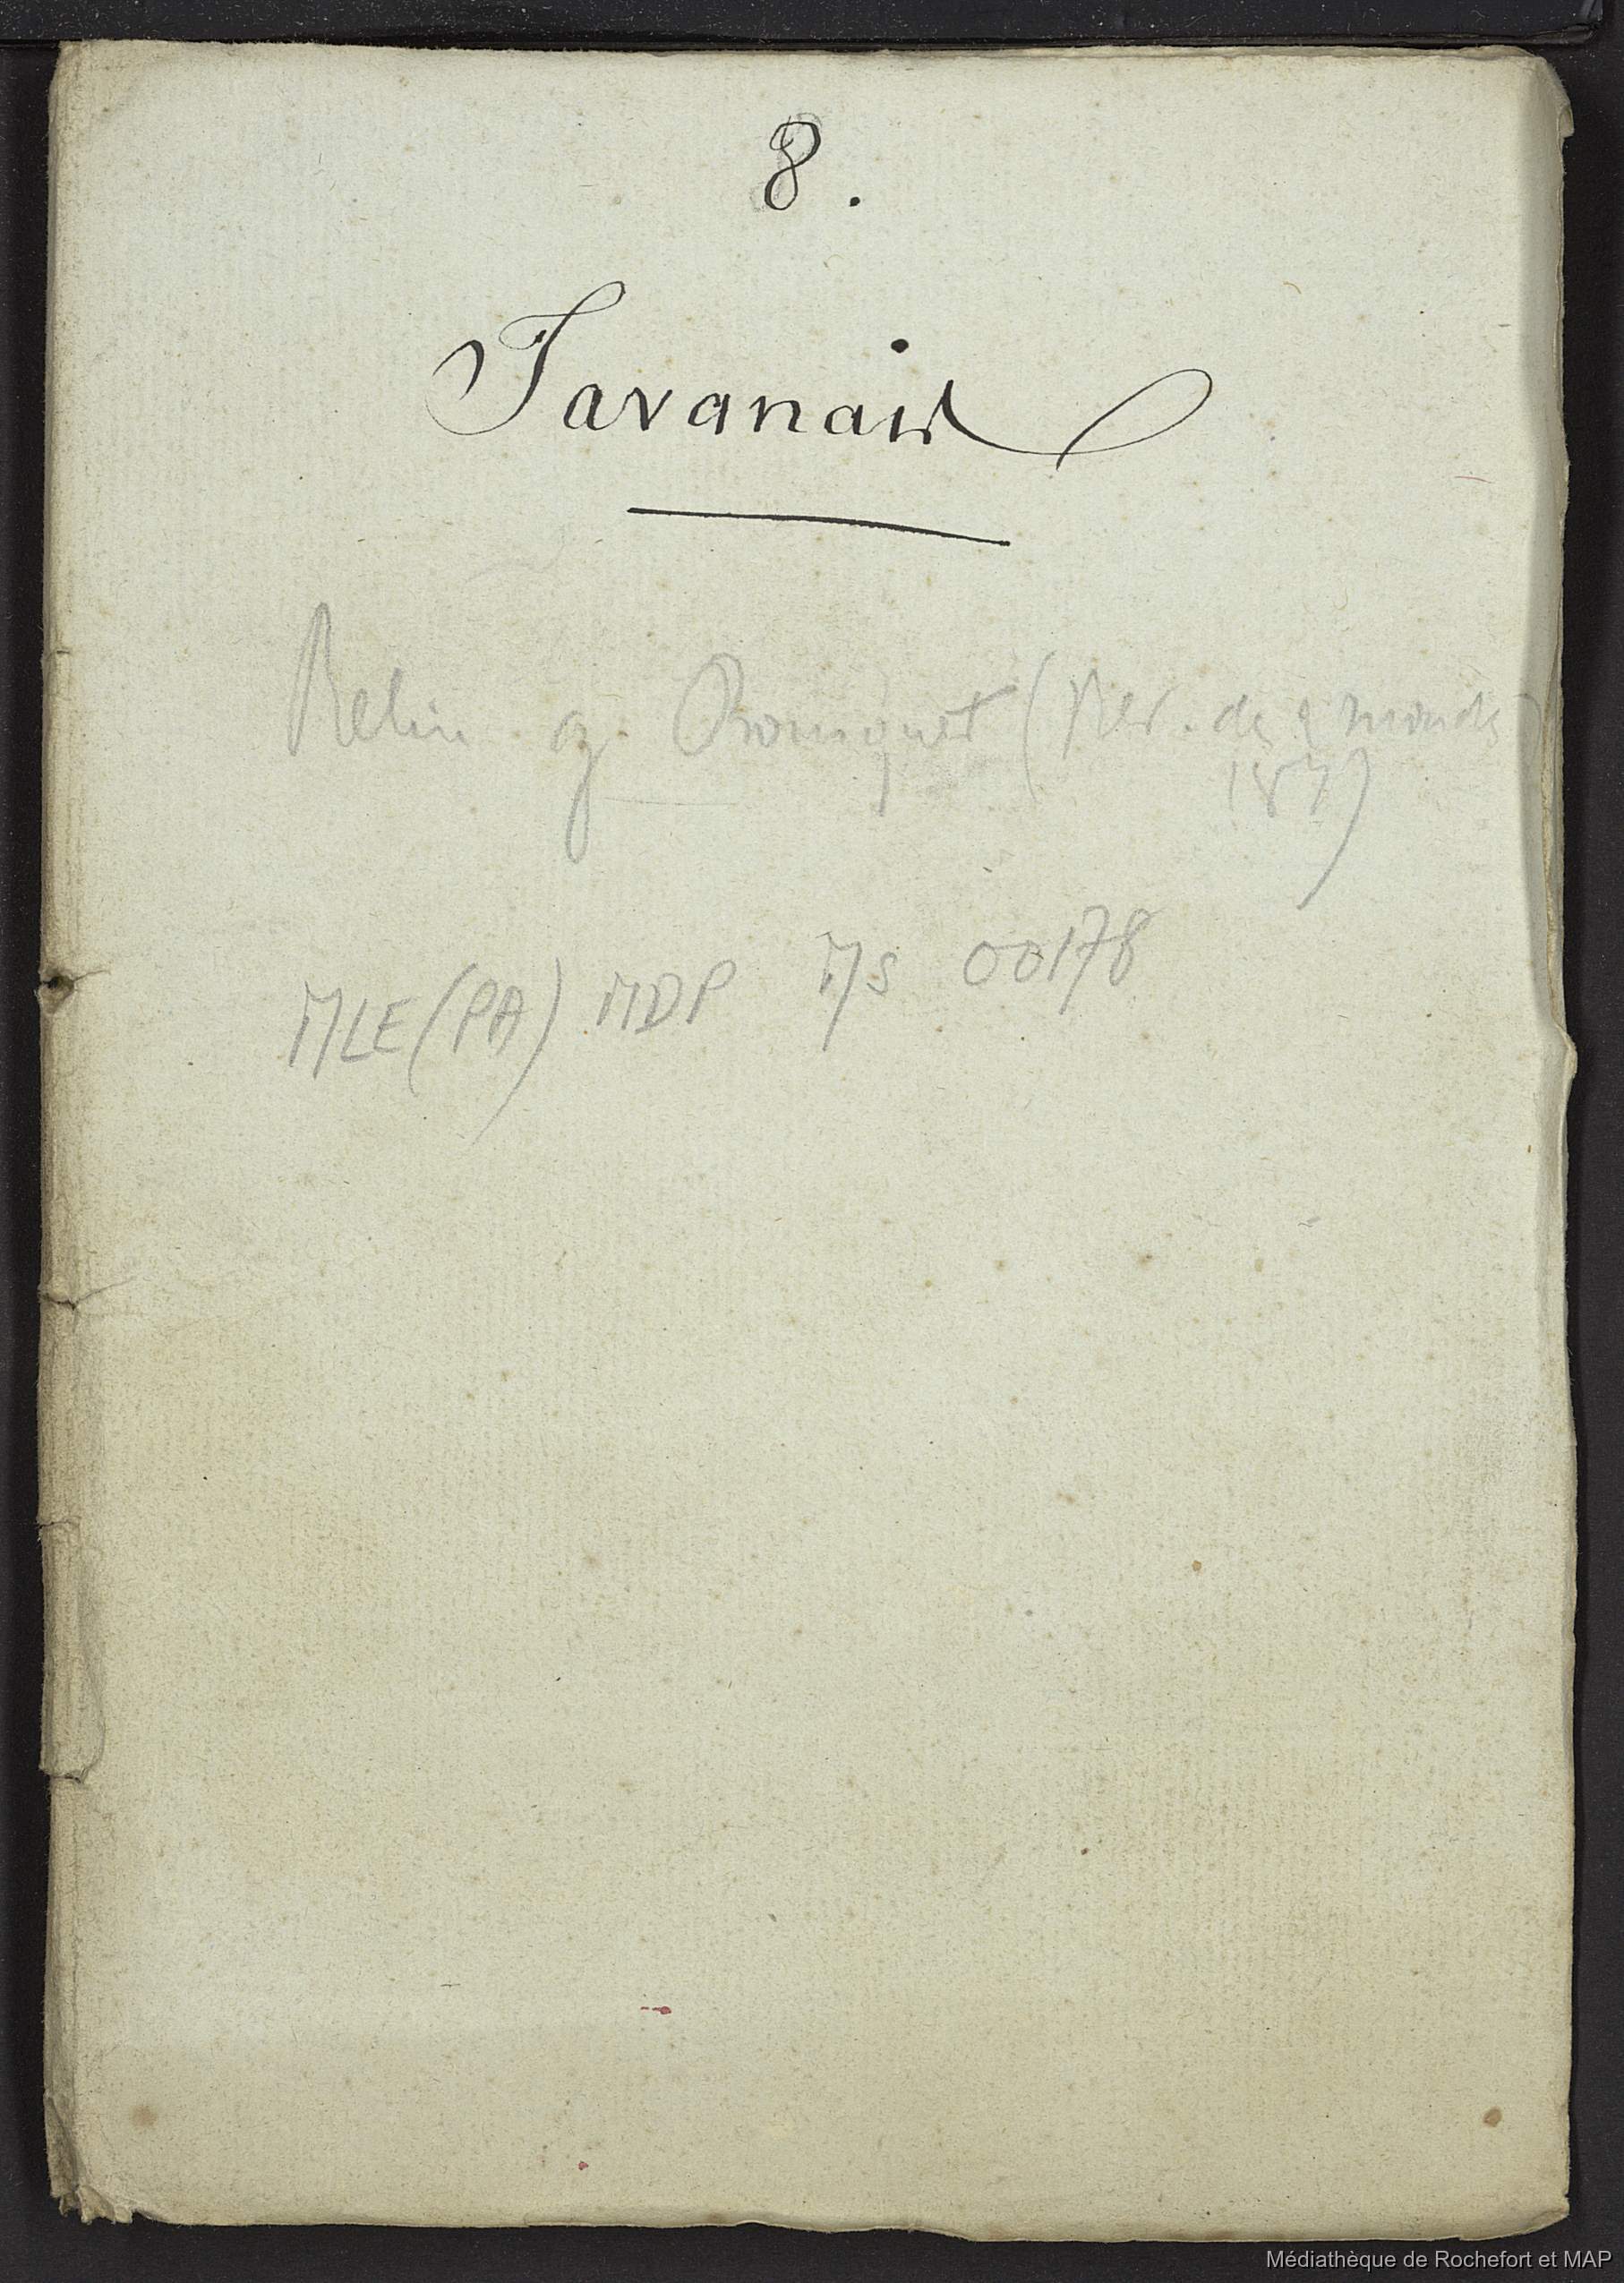 8.
Javanais
(Rev. des 2 mondes
MLE (PA) MDP MS 00178
Médiathèque de Rochefort et MAP